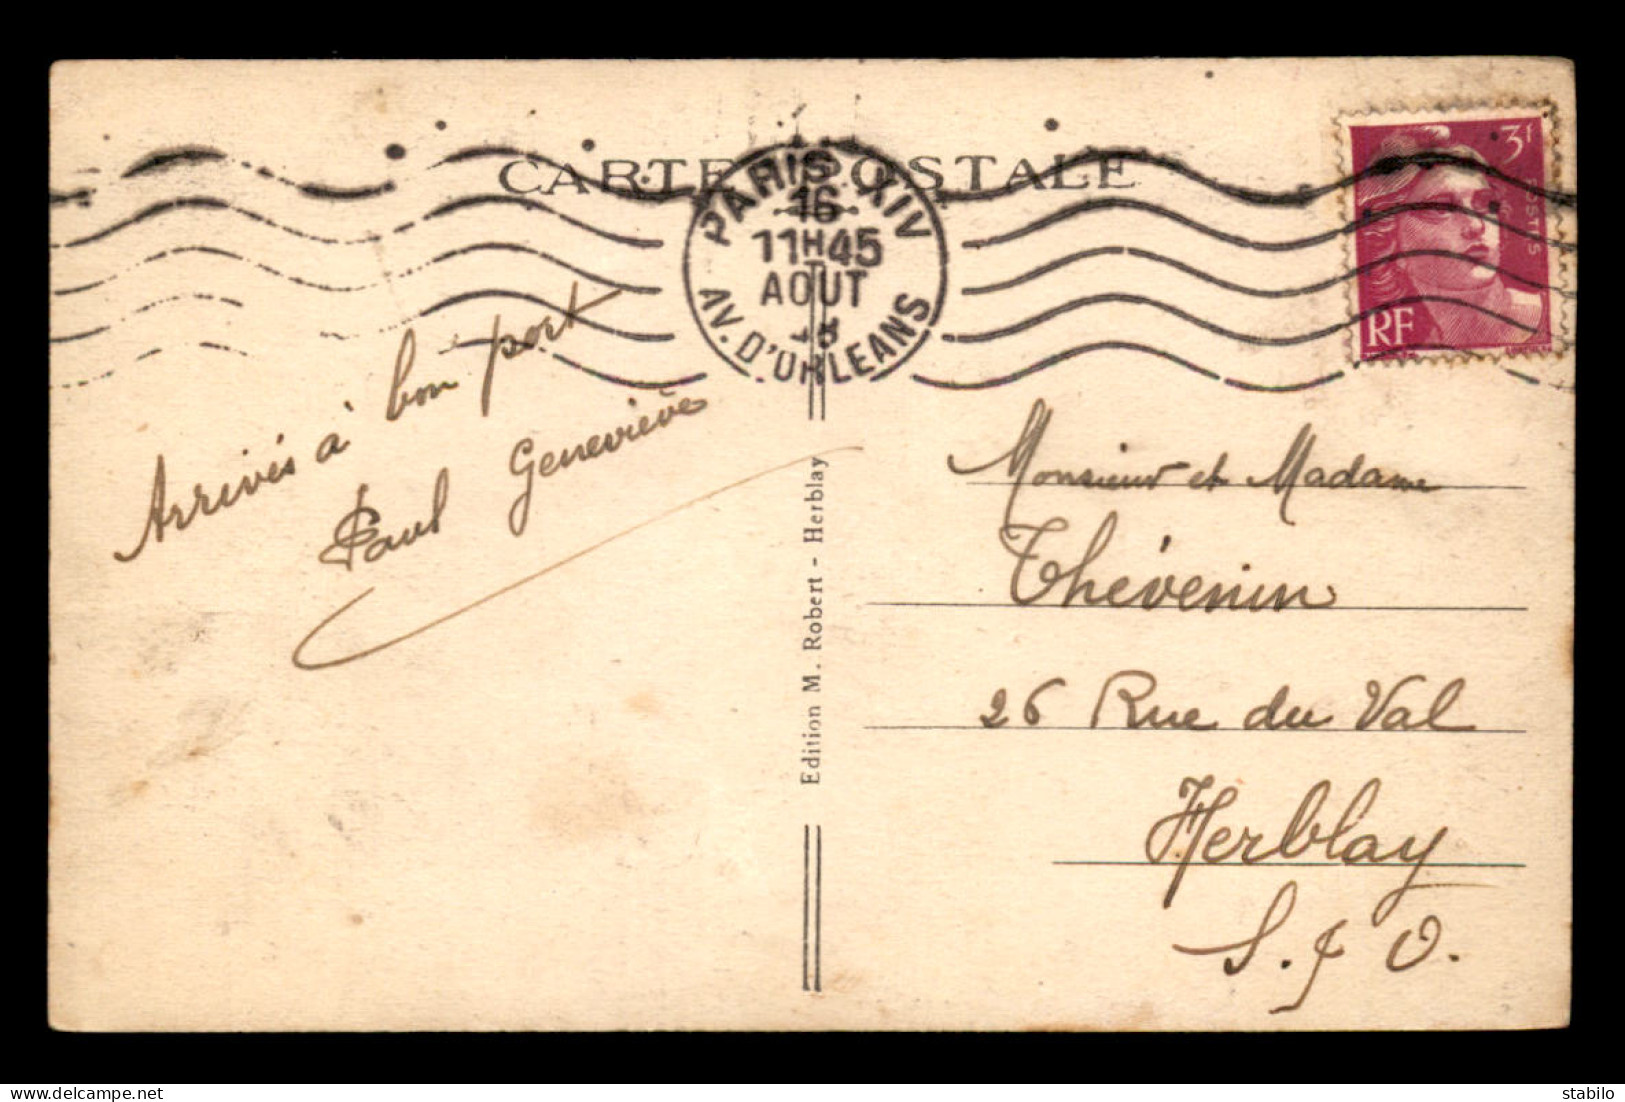 CARTE POSTALE
PARIS XIV
16
11H45
AOUT
AV. D'ORLEANS
3F
POSTES
RF
Arrivés à bon port
Paul Geneviève
Edition M. Robert - Herblay
Monsieur et Madame
Thévenin
26 Rue du Val
Herblay
S. & O.
stabilo